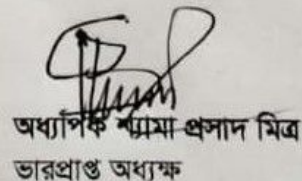 অধ্যাপক শ্যামা প্রসাদ মিত্র
ভারপ্রাপ্ত অধ্যক্ষ